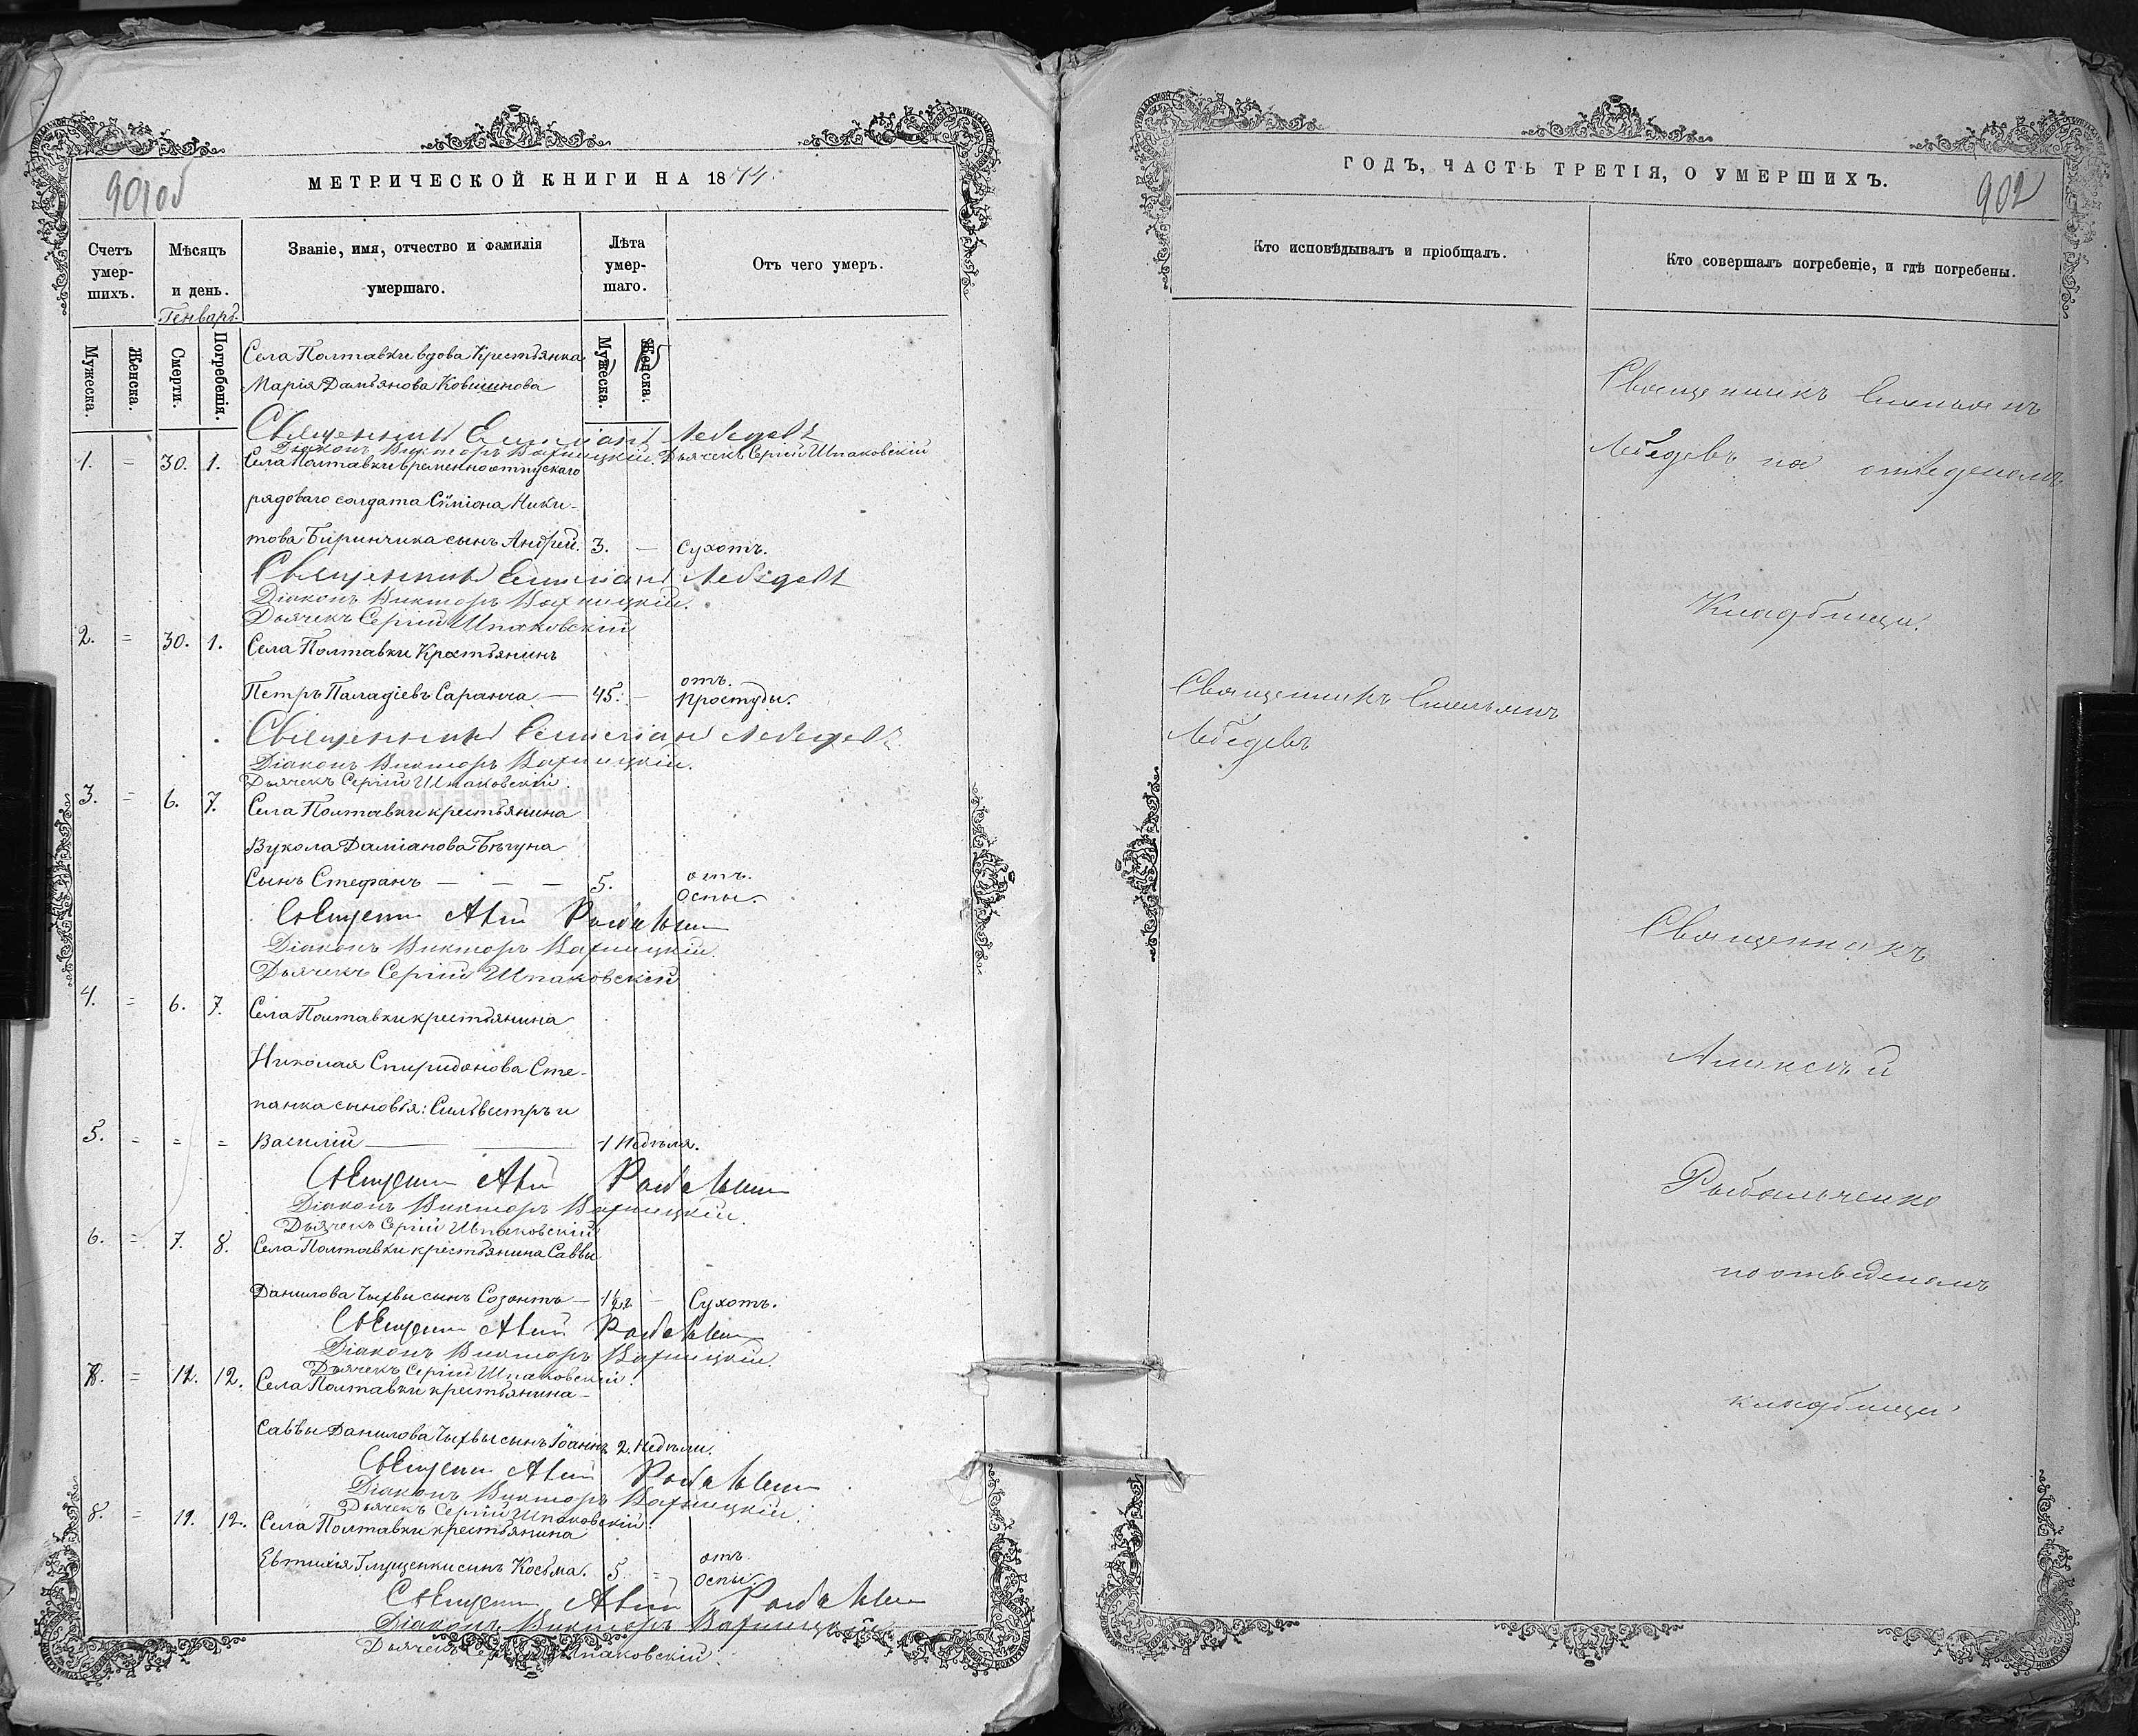 901об
МЕТРИЧЕСКОЙ КНИГИ НА 1874.
Счетъ умер-шихъ.
Мѣсяцъ и день.
Генварь.
Званіе, имя, отчество и фамилія умершаго.
Лѣта умер-шаго.
Отъ чего умеръ.
Мужеска.
Женска.
Смерти.
Погребенія.
Мужеска.
Женска.
Села Полтавки вдова Крестьянка
Марія Дамьянова
Священникъ Емиліанъ Лебедевъ
Діаконъ Викторъ Дьячекъ Сергій Шпаковскій
1. = 30. 1. Села Полтавки временноотпускаго
рядоваго солдата Сѵміона Ники-
това Биринчика сынъ Андрей. 3. — Сухотъ.
Священникъ Емиліанъ Лебедевъ
Діаконъ Викторъ
Дьячекъ Сергій Шпаковскій
2. = 30. 1. Села Полтавки Крестьянинъ
Петръ Паладіевъ Саранча — 45. — отъ простуды.
Священникъ Емиліанъ Лебедевъ
Діаконъ Викторъ
Дьячекъ Сергій Шпаковскій.
3. = 6. 7. Села Полтавки крестьянина
Вукола Даміанова Бѣгуна
Сынъ Стефанъ — — — 5. отъ Оспы.
Діаконъ Викторъ
Дьячекъ Сергій Шпаковскій
4. = 6. 7. Села Полтавки крестьянина
Николая Спиридонова Сте-
панка сыновья: Сильвестръ и
5. = = = Василій — — 1 недѣля.
Діаконъ Викторъ
Дьячекъ Сергій Шпаковскій
6. = 7. 8. Села Полтавки крестьянина Саввы
Данилова Чыхвы сынъ Созонтъ — 1½ — Сухотъ.
Діаконъ Викторъ
Дьячекъ Сергій Шпаковскій.
7. = 11. 12. Села Полтавки крестьянина —
Саввы Данилова Чыхвы сынъ Іоаннъ 2. недѣли.
Діаконъ Викторъ
Дьячекъ Сергій Шпаковскій.
8. = 11. 12. Села Полтавки крестьянина
Евтихія Глущенки сынъ Косьма. 5. = отъ Оспы.
Діаконъ Викторъ
Дьячекъ Сергій Шпаковскій.
ГОДЪ, ЧАСТЬ ТРЕТІЯ, О УМЕРШИХЪ.
902
Кто исповѣдывалъ и пріобщалъ.
Кто совершалъ погребеніе, и гдѣ погребены.
Священникъ Емильянъ
Лебедевъ на отведеномъ
Кладбищи.
Священникъ Емельянъ
Лебедевъ
Священникъ
Алексѣй
Рыбальченко
по отведеномъ
кладбищи